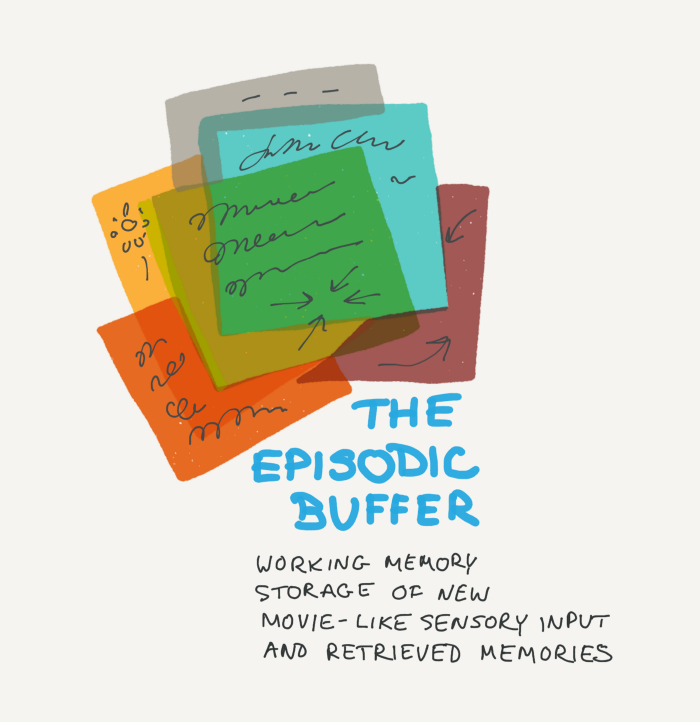 THE
EPISODIC
BUFFER
WORKING MEMORY
STORAGE OF NEW
MOVIE-LIKE SENSORY INPUT
AND RETRIEVED MEMORIES